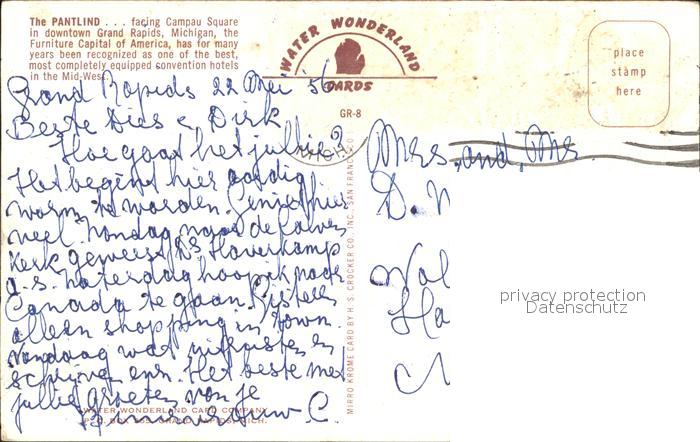 The PANTLIND . . . facing Campau Square
in downtown Grand Rapids, Michigan, the
Furniture Capital of America, has for many
years been recognized as one of the best,
most completely equipped convention hotels
in the Mid-West.
WATER WONDERLAND
CARDS
GR-8
place
stamp
here
Grand Rapids 22 Mei '56
Beste Dies & Dirk
Hoe gaat het jullie?
Het begint hier aardig
warm te worden. hier
veel. Zondag naar de
Kerk geweest Ds Haverkamp
a.s. zaterdag hoop ik naar
Canada te gaan. Gisteren
alleen shopping in town.
Vandaag wat uitrusten en
schrijven enz. Het beste met
jullie groeten van je
C.
MIRRO KROME CARD BY H. S. CROCKER CO., INC., SAN FRANCISCO
WATER WONDERLAND CARD COMPANY
GRAND RAPIDS, MICH.
Mrs. and Mr.
D.
Ha
privacy protection
Datenschutz